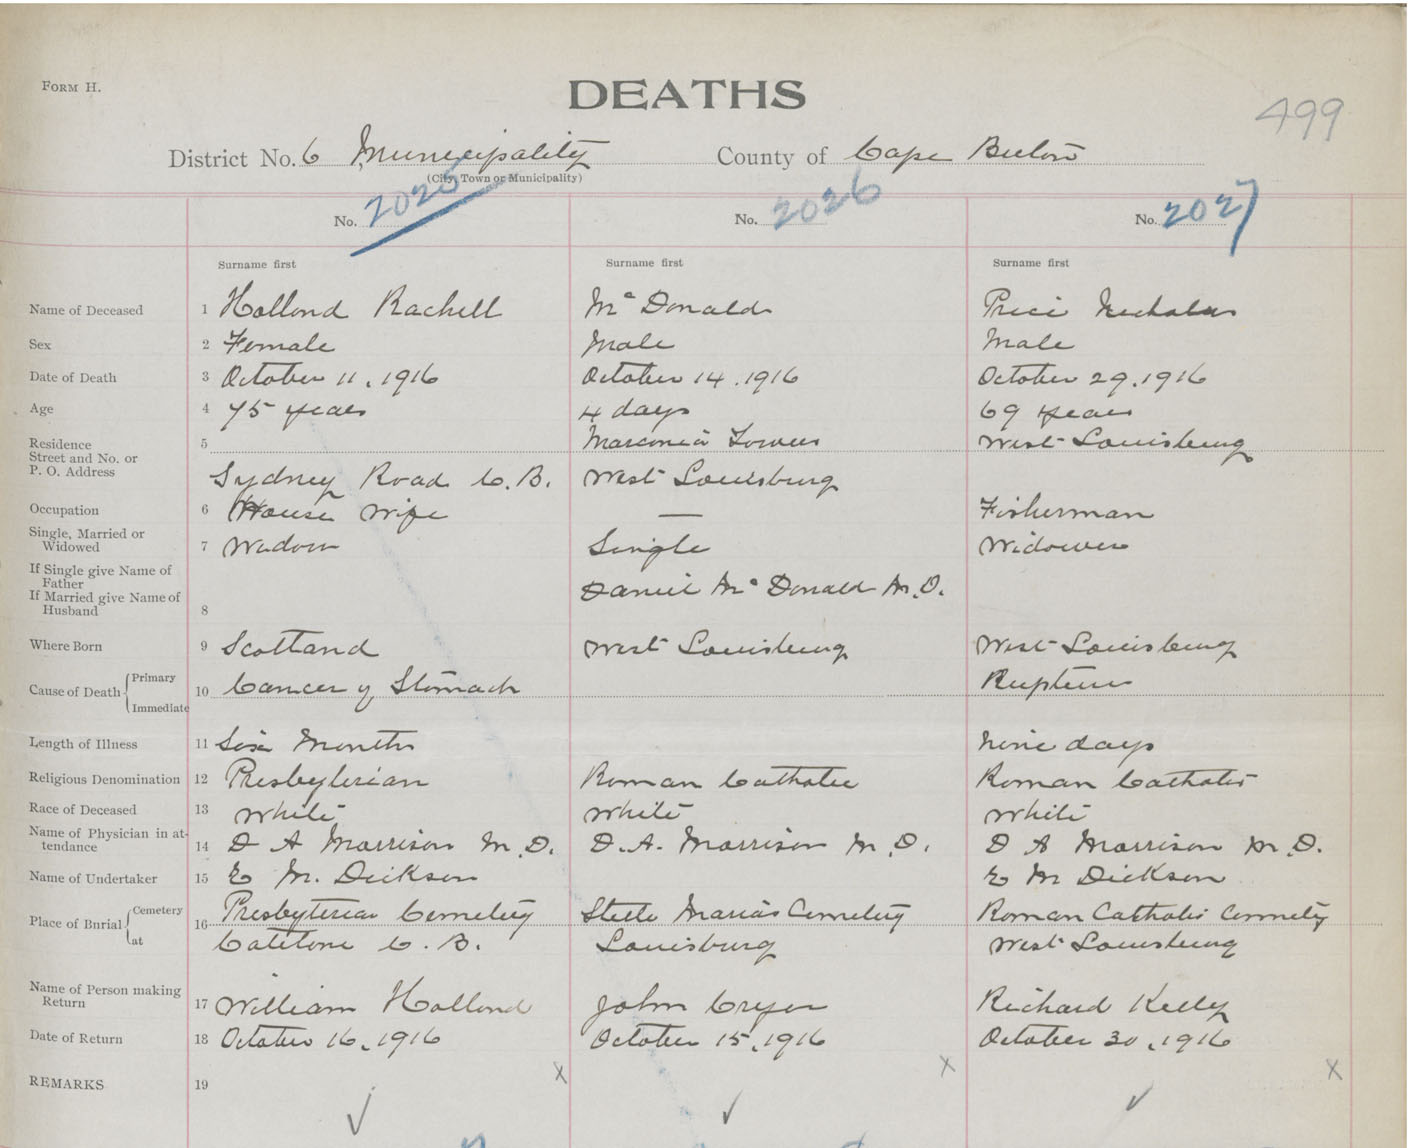 FORM H.
DEATHS
499
District No. 6 Municipality County of Cape Breton
(City, Town or Municipality)
No. 2025 No. 2026 No. 2027
Surname first Surname first Surname first
Name of Deceased 1 Hollond Rachell Mc Donald Price Nicholas
Sex 2 Female Male Male
Date of Death 3 October 11, 1916 October 14, 1916 October 29, 1916
Age 4 75 years 4 days 69 years
Residence 5 Marconia Towers West Louisburg
Street and No. or
P. O. Address Sydney Road C. B. West Louisburg
Occupation 6 House Wife — Fisherman
Single, Married or
Widowed 7 Widow Single Widower
If Single give Name of
Father
If Married give Name of Daniel Mc Donald M.D.
Husband 8
Where Born 9 Scotland West Louisburg West Louisburg
Cause of Death Primary 10 Cancer of Stomach Rupture
Immediate
Length of Illness 11 Six Months Nine days
Religious Denomination 12 Presbyterian Roman Catholic Roman Catholic
Race of Deceased 13 White White White
Name of Physician in at-
tendance 14 D A Morrison M. D. D. A. Morrison M. D. D A Morrison M. D.
Name of Undertaker 15 E M. Dickson E M Dickson
Place of Burial Cemetery 16 Presbyterian Cemetery Stella Maria's Cemetery Roman Catholic Cemetery
at Catalone C. B. Louisburg West Louisburg
Name of Person making
Return 17 William Hollond John Cryer Richard Kelly
Date of Return 18 October 16, 1916 October 15, 1916 October 30, 1916
x x x
REMARKS 19
✓ ✓ ✓